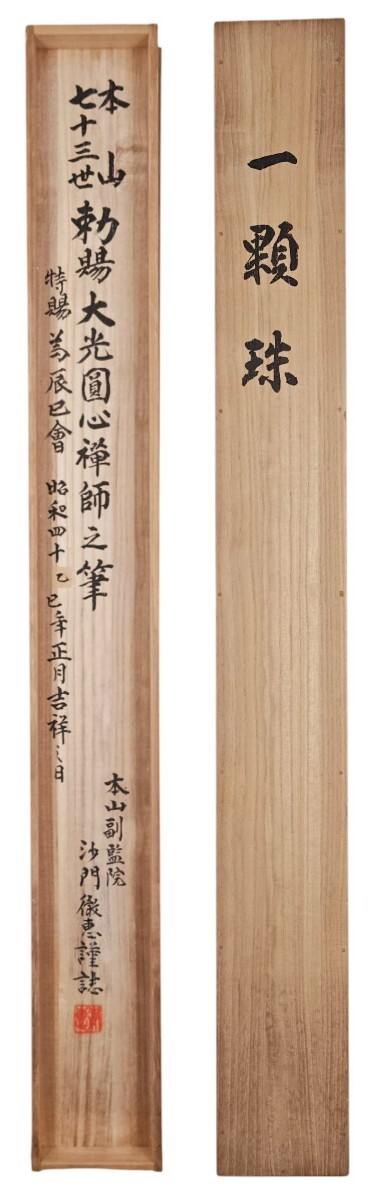 一顆珠
本山
七十三世
勅賜大光圓心禅師之筆
特賜為辰巳會 昭和四十乙巳年正月吉祥之日
本山副監院
沙門徹恵謹誌